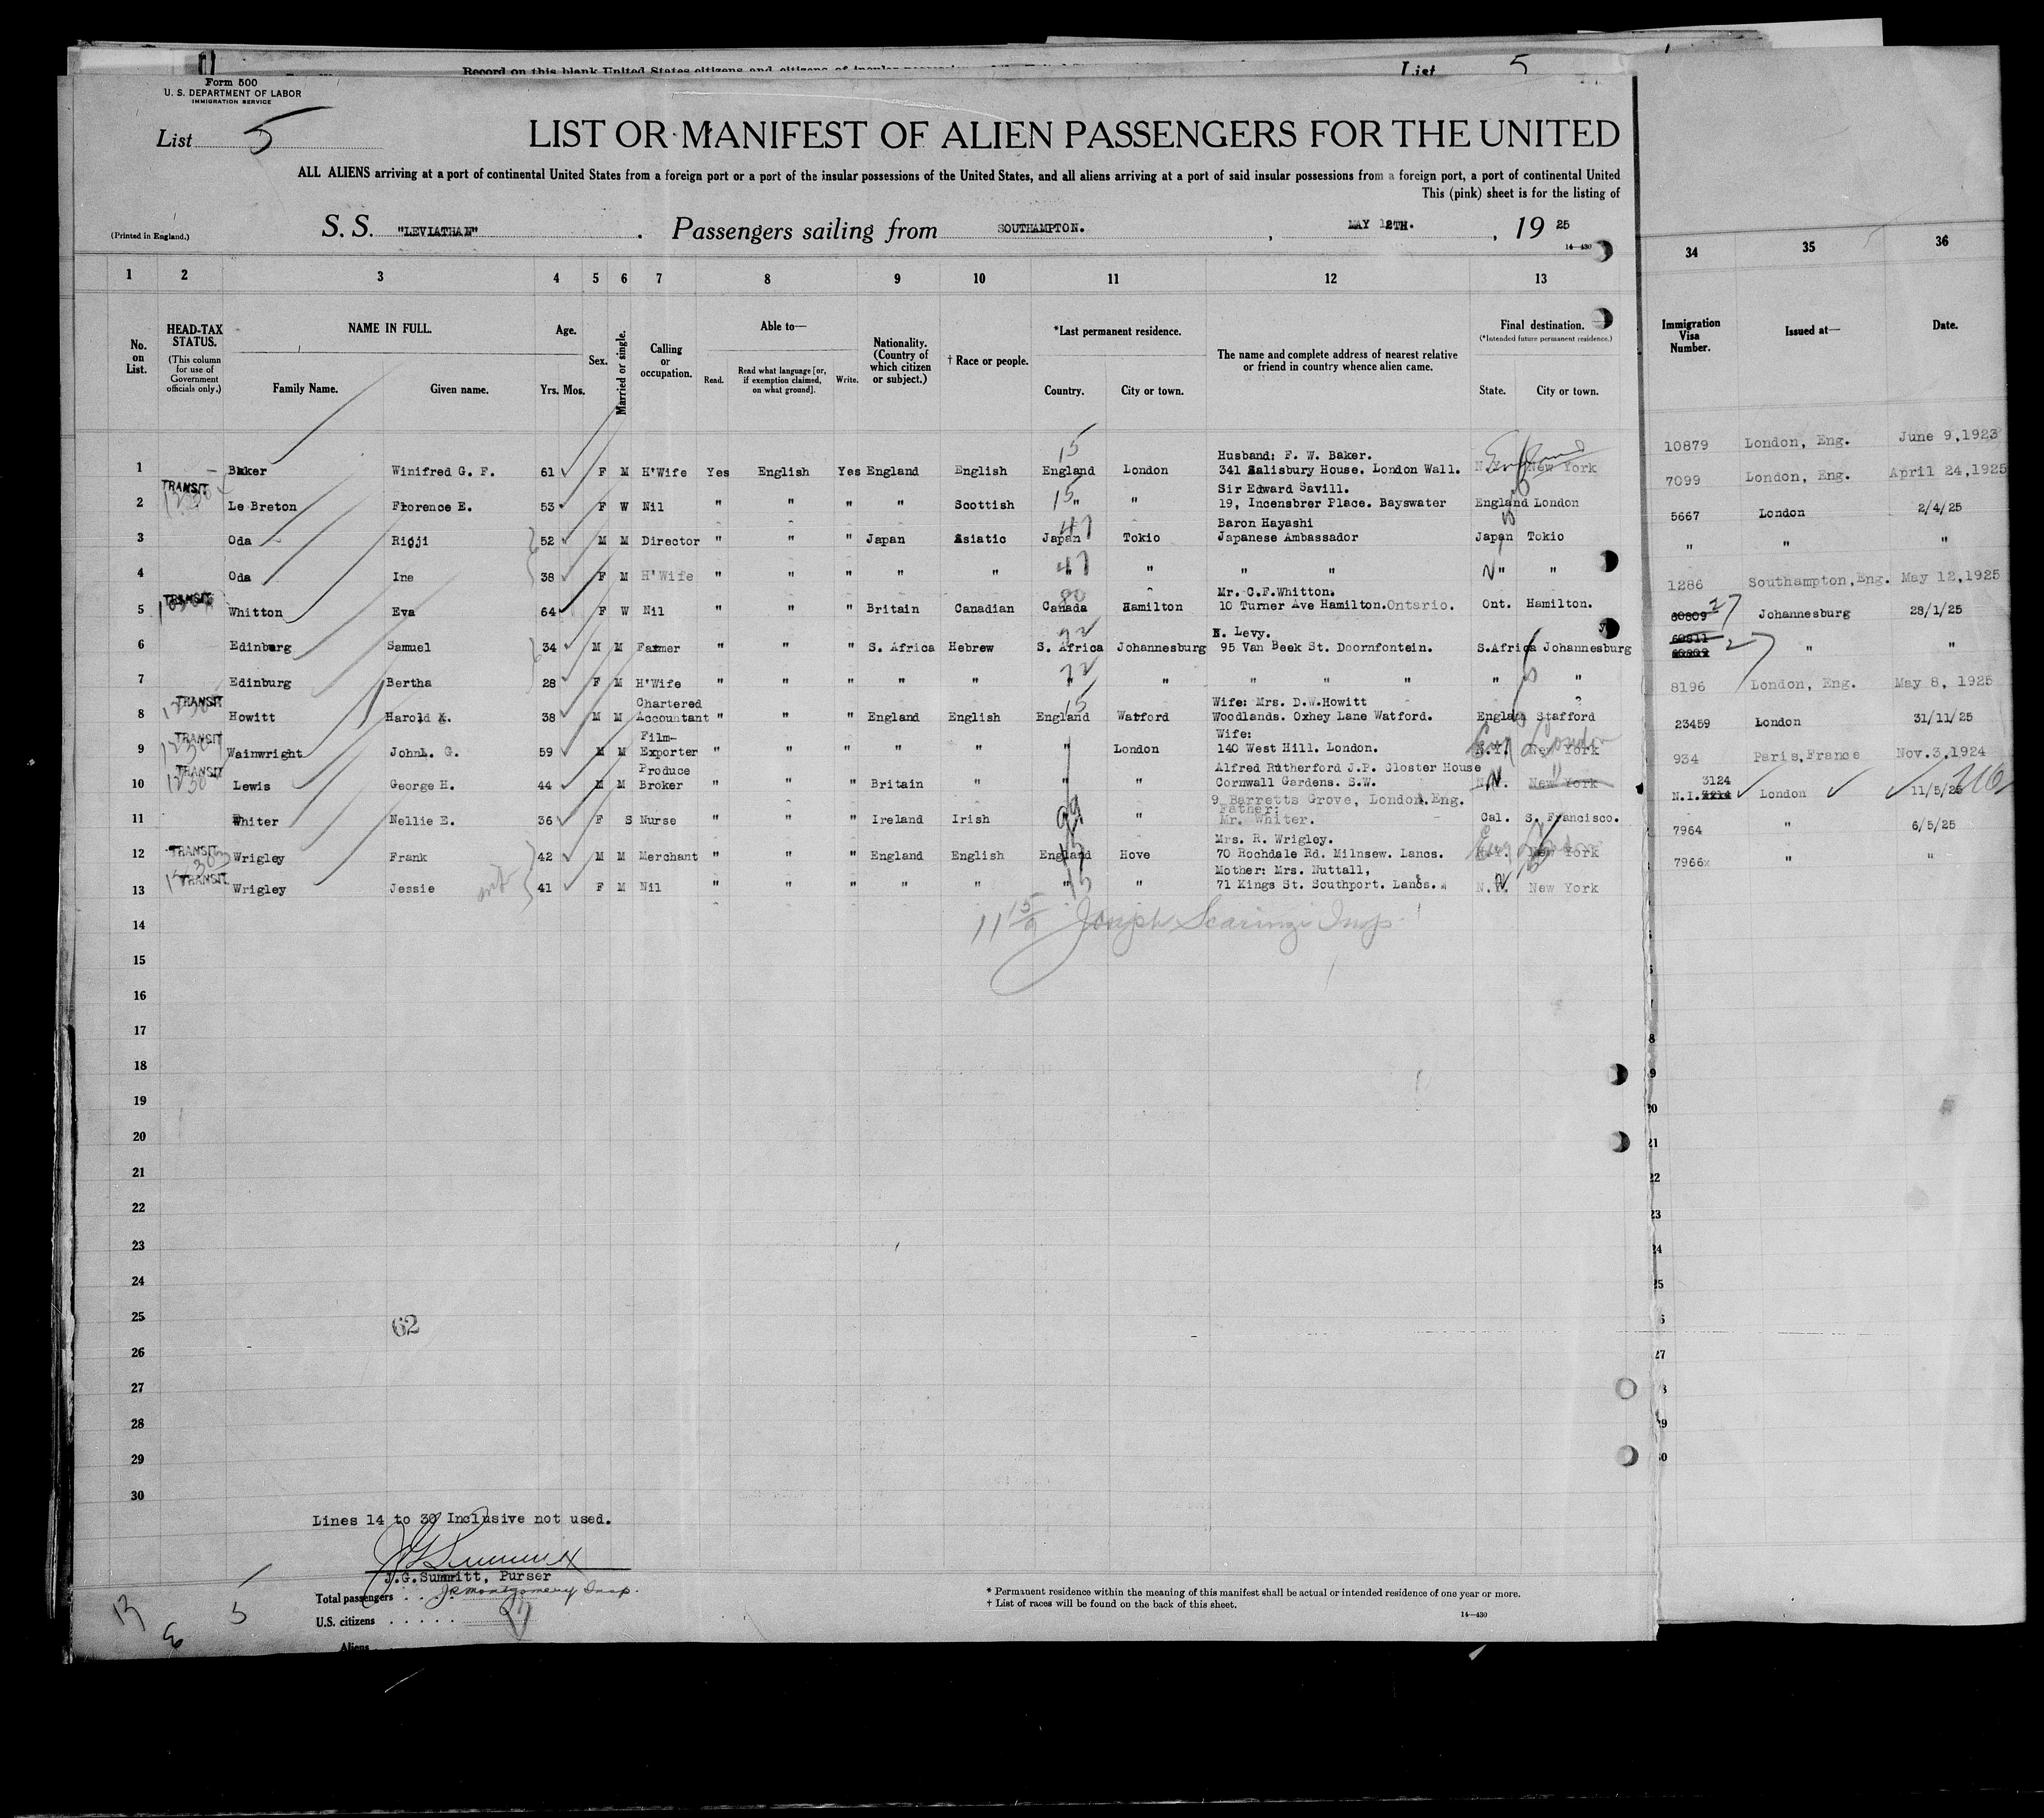 Record on this blank United States citizens and citizens of insular
List 5
Form 500
U. S. DEPARTMENT OF LABOR
IMMIGRATION SERVICE
List 5
LIST OR MANIFEST OF ALIEN PASSENGERS FOR THE UNITED
ALL ALIENS arriving at a port of continental United States from a foreign port or a port of the insular possessions of the United States, and all aliens arriving at a port of said insular possessions from a foreign port, a port of continental United
This (pink) sheet is for the listing of
(Printed in England.)
S. S. "LEVIATHAN" . Passengers sailing from SOUTHAMPTON. , MAY 12TH. , 19 25
14—430
1 2 3 4 5 6 7 8 9 10 11 12 13 34 35 36
No. on List.
HEAD-TAX STATUS.
(This column for use of Government officials only.)
NAME IN FULL.
Family Name. Given name.
Age.
Yrs. Mos.
Sex.
Married or single.
Calling or occupation.
Able to—
Read. Read what language [or, if exemption claimed, on what ground]. Write.
Nationality. (Country of which citizen or subject.)
† Race or people.
*Last permanent residence.
Country. City or town.
The name and complete address of nearest relative or friend in country whence alien came.
Final destination.
(*Intended future permanent residence.)
State. City or town.
Immigration Visa Number.
Issued at—
Date.
10879 London, Eng. June 9,1923
7099 London, Eng. April 24,1925
5667 London 2/4/25
" " "
1286 Southampton,Eng. May 12,1925
60809 27 Johannesburg 28/1/25
60811 27 " "
8196 London, Eng. May 8, 1925
23459 London 31/11/25
934 Paris,France Nov.3,1924
3124
N.I. London 11/5/25
7964 " 6/5/25
7966 " "
15
Husband: F. W. Baker.
1 Baker Winifred G. F. 61 F M H'Wife Yes English Yes England English England London 341 Salisbury House. London Wall. N.Y. New York England
TRANSIT 15 Sir Edward Savill.
2 Le Breton Florence E. 53 F W Nil " " " " Scottish " " 19, Incensbrer Place. Bayswater England London
47 Baron Hayashi
3 Oda Rigji 52 M M Director " " " Japan Asiatic Japan Tokio Japanese Ambassador Japan Tokio
47
4 Oda Ine 38 F M H'Wife " " " " " " " " " " "
TRANSIT 80 Mr. C.F.Whitton.
5 Whitton Eva 64 F W Nil " " " Britain Canadian Canada Hamilton 10 Turner Ave Hamilton.Ontario. Ont. Hamilton.
N. Levy.
6 Edinburg Samuel 34 M M Farmer " " " S. Africa Hebrew S. Africa Johannesburg 95 Van Beek St. Doornfontein. S.Africa Johannesburg
7 Edinburg Bertha 28 F M H'Wife " " " " " " " " " " " "
TRANSIT Chartered 15 Wife: Mrs. D.W.Howitt ?
8 Howitt Harold 38 M M Accountant " " " England English England Watford Woodlands. Oxhey Lane Watford. England Stafford
TRANSIT Film- Wife:
9 Wainwright JohnL. G. 59 M M Exporter " " " " " " London 140 West Hill. London. N.Y. New York Eng London
TRANSIT Produce Alfred Rutherford J.P. Gloster House
10 Lewis George H. 44 M M Broker " " " Britain " " " Cornwall Gardens. S.W. N.Y. New York
9 Barretts Grove, London. Eng.
99 Father:
11 Whiter Nellie E. 36 F S Nurse " " " Ireland Irish " Mr. Whiter. Cal. S. Francisco.
TRANSIT Mrs. R. Wrigley.
12 Wrigley Frank 42 M M Merchant " " " England English England Hove 70 Rochdale Rd. Milnsew. Lancs. N.Y. New York
TRANSIT Mother: Mrs. Nuttall,
13 Wrigley Jessie 41 F M Nil " " " " " " " 71 Kings St. Southport. Lancs. N.Y. New York
14 Joseph Scaringi Insp
15
16
17
18
19
20
21
22
23
24
25
62
26
27
28
29
30
Lines 14 to 30 Inclusive not used.
J.G.Summitt, Purser
Total passengers . . JR Montgomery Insp.
U.S. citizens . . . . .
Aliens .
* Permanent residence within the meaning of this manifest shall be actual or intended residence of one year or more.
† List of races will be found on the back of this sheet.
14—430
5